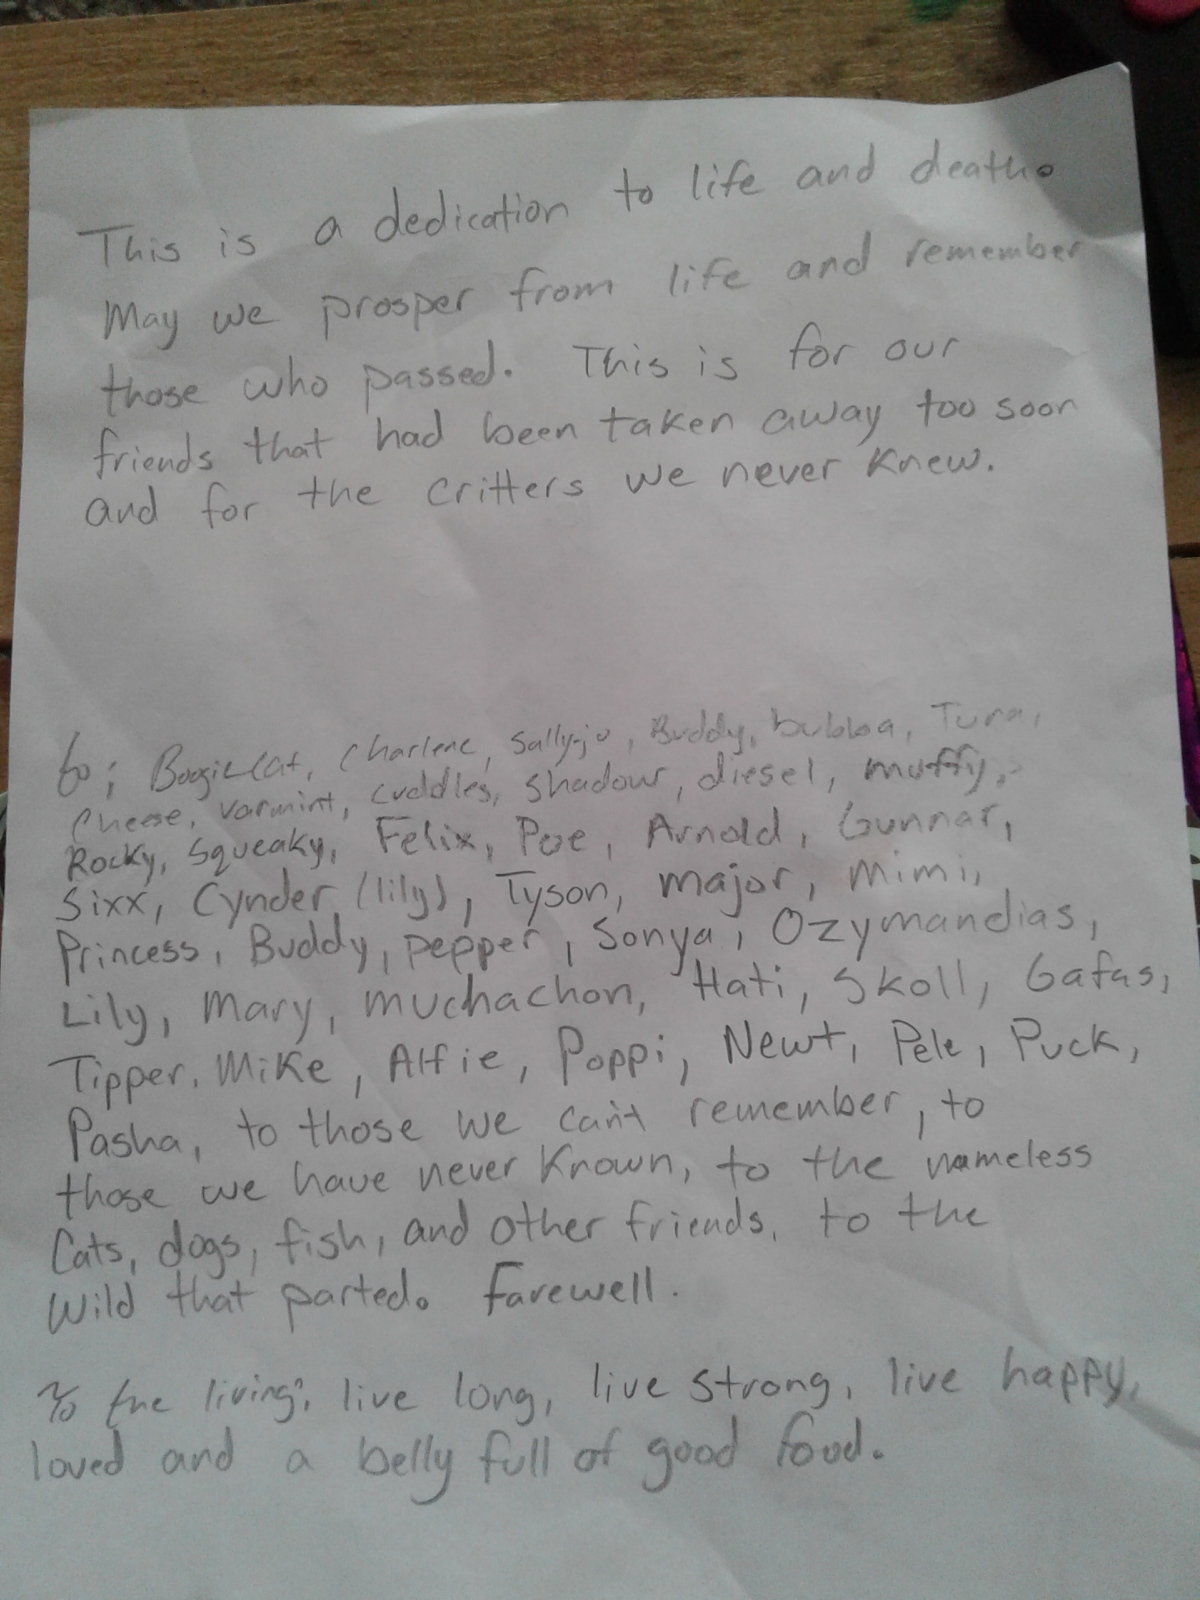 This is a dedication to life and death.
May we prosper from life and remember
those who passed. This is for our
friends that had been taken away too soon
and for the critters we never knew.
to; Boogie Cat, Charlene, Sally-jo, Buddy, bubba, Tuna,
Cheese, varmint, cuddles, shadow, diesel, muffy,
Rocky, Squeaky, Felix, Poe, Arnold, Gunnar,
Sixx, Cynder (lily), Tyson, major, Mimi,
Princess, Buddy, pepper, Sonya, Ozymandias,
Lily, Mary, muchachon, Hati, Skoll, Gafas,
Tipper, Mike, Alfie, Poppi, Newt, Pele, Puck,
Pasha, to those we can't remember, to
those we have never known, to the nameless
Cats, dogs, fish, and other friends, to the
Wild that parted. Farewell.
To the living; live long, live strong, live happy,
loved and a belly full of good food.